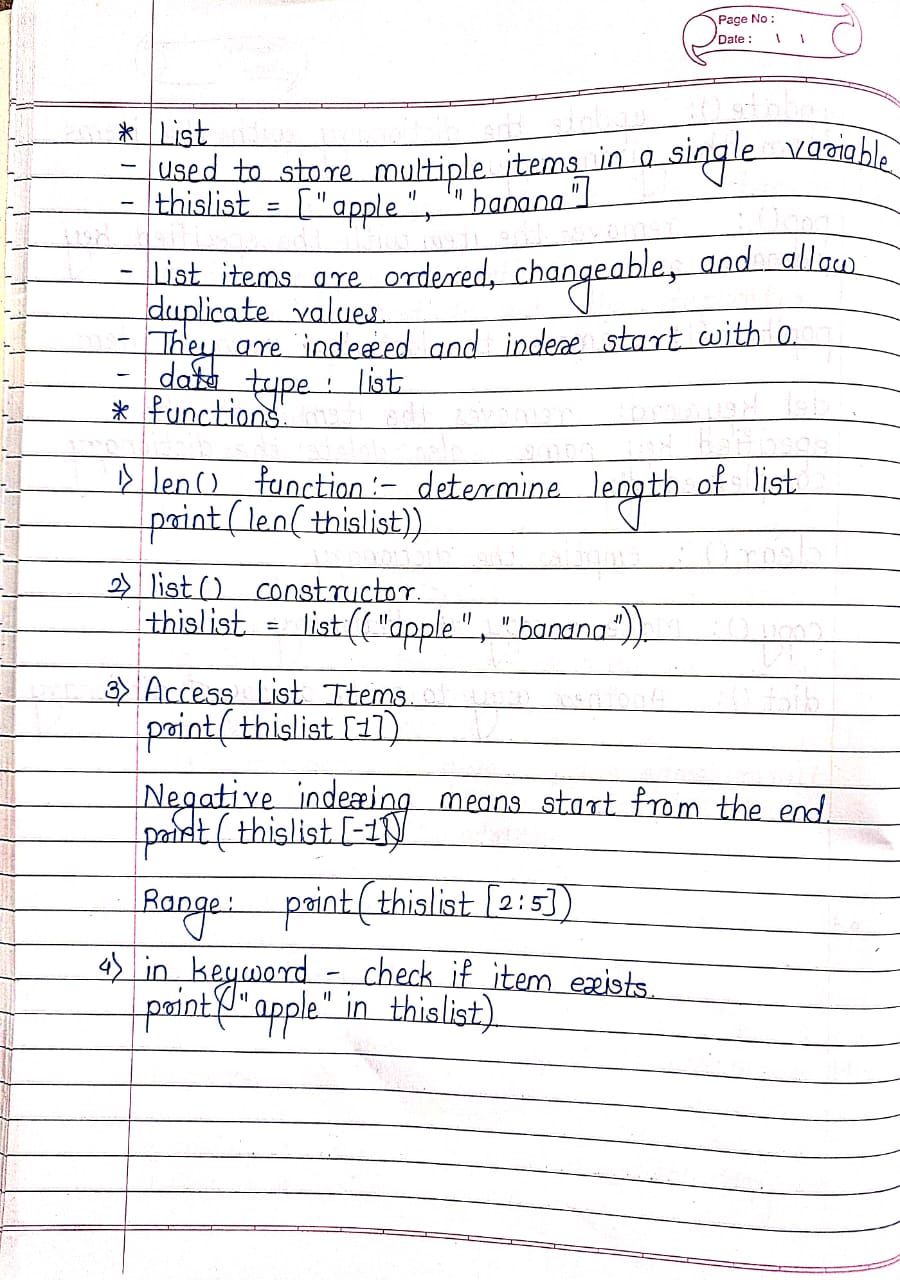 Page No :
Date :
* List
- used to store multiple items in a single variable.
- thislist = ["apple", "banana"]
- List items are ordered, changeable, and allow
duplicate values.
- They are indexed and index start with 0.
- data type : list
* functions.
1) len() function :- determine length of list
print(len(thislist))
2) list() constructor.
thislist = list(("apple", "banana")).
3) Access List Items.
print(thislist[1])
Negative indexing means start from the end.
print(thislist[-1])
Range: print(thislist[2:5])
4) in keyword - check if item exists.
print("apple" in thislist).